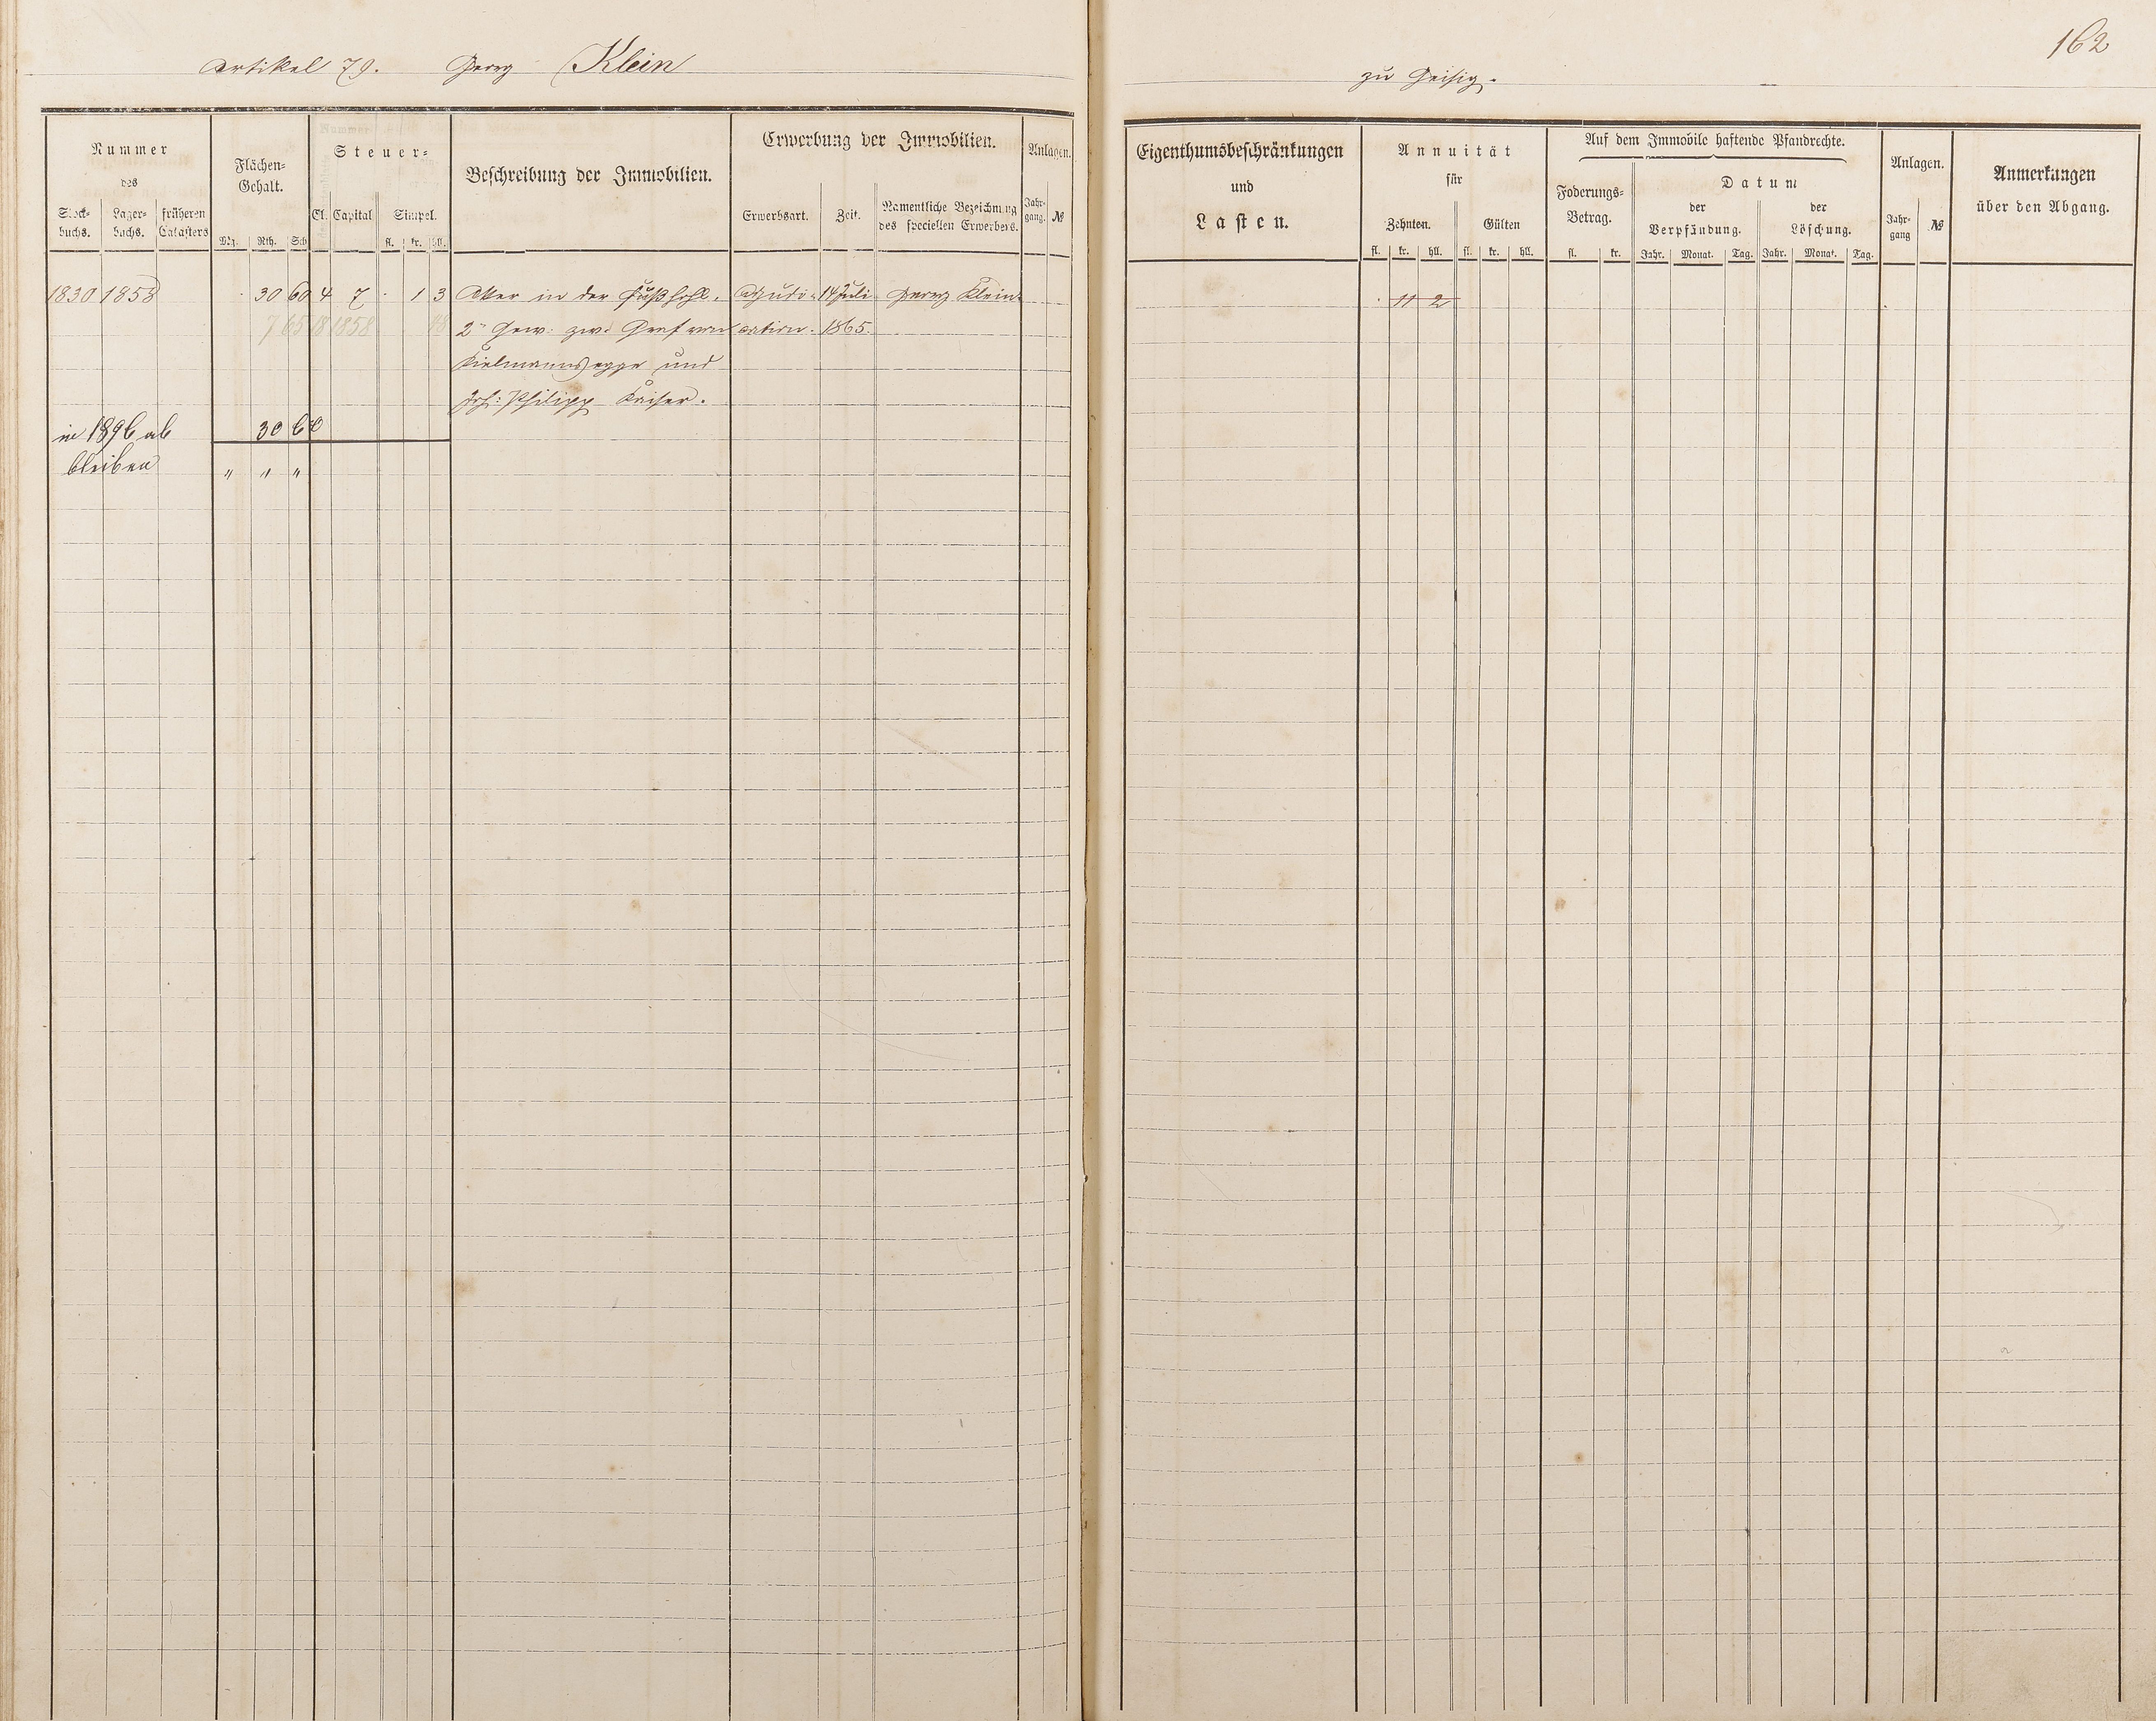 Artikel 79. Georg Klein
zu Geisig.
162
Nummer
des
Stock-
buchs.
Lager-
buchs.
früheren
Catasters
Flächen-
Gehalt.
Mg. Rth. Sch.
Steuer-
Cl. Capital Simpel.
fl. kr. hll.
Beschreibung der Immobilien.
Erwerbung der Immobilien.
Erwerbsart. Zeit.
Namentliche Bezeichnung
des speciellen Erwerbers.
Anlagen.
Jahr-
gang. №
Eigenthumsbeschränkungen
und
Lasten.
Annuität
für
Zehnten. Gülten
fl. kr. hll. fl. kr. hll.
Auf dem Immobile haftende Pfandrechte.
Foderungs-
Betrag.
fl. kr.
Datum
der
Verpfändung.
der
Löschung.
Jahr. Monat. Tag. Jahr. Monat. Tag.
Anlagen.
Jahr-
gang №
Anmerkungen
über den Abgang.
1830 1858 30 60 4 7 1 3 Acker in der Fußhohl. Adjudi- 14 Juli Georg Klein. 11 2
7 65 18 1858 2r Gew: zw: Graf von cation. 1865.
Kielmannsegge und
Joh: Philipp Kaiser.
in 1896 ab 30 60
bleiben " " "